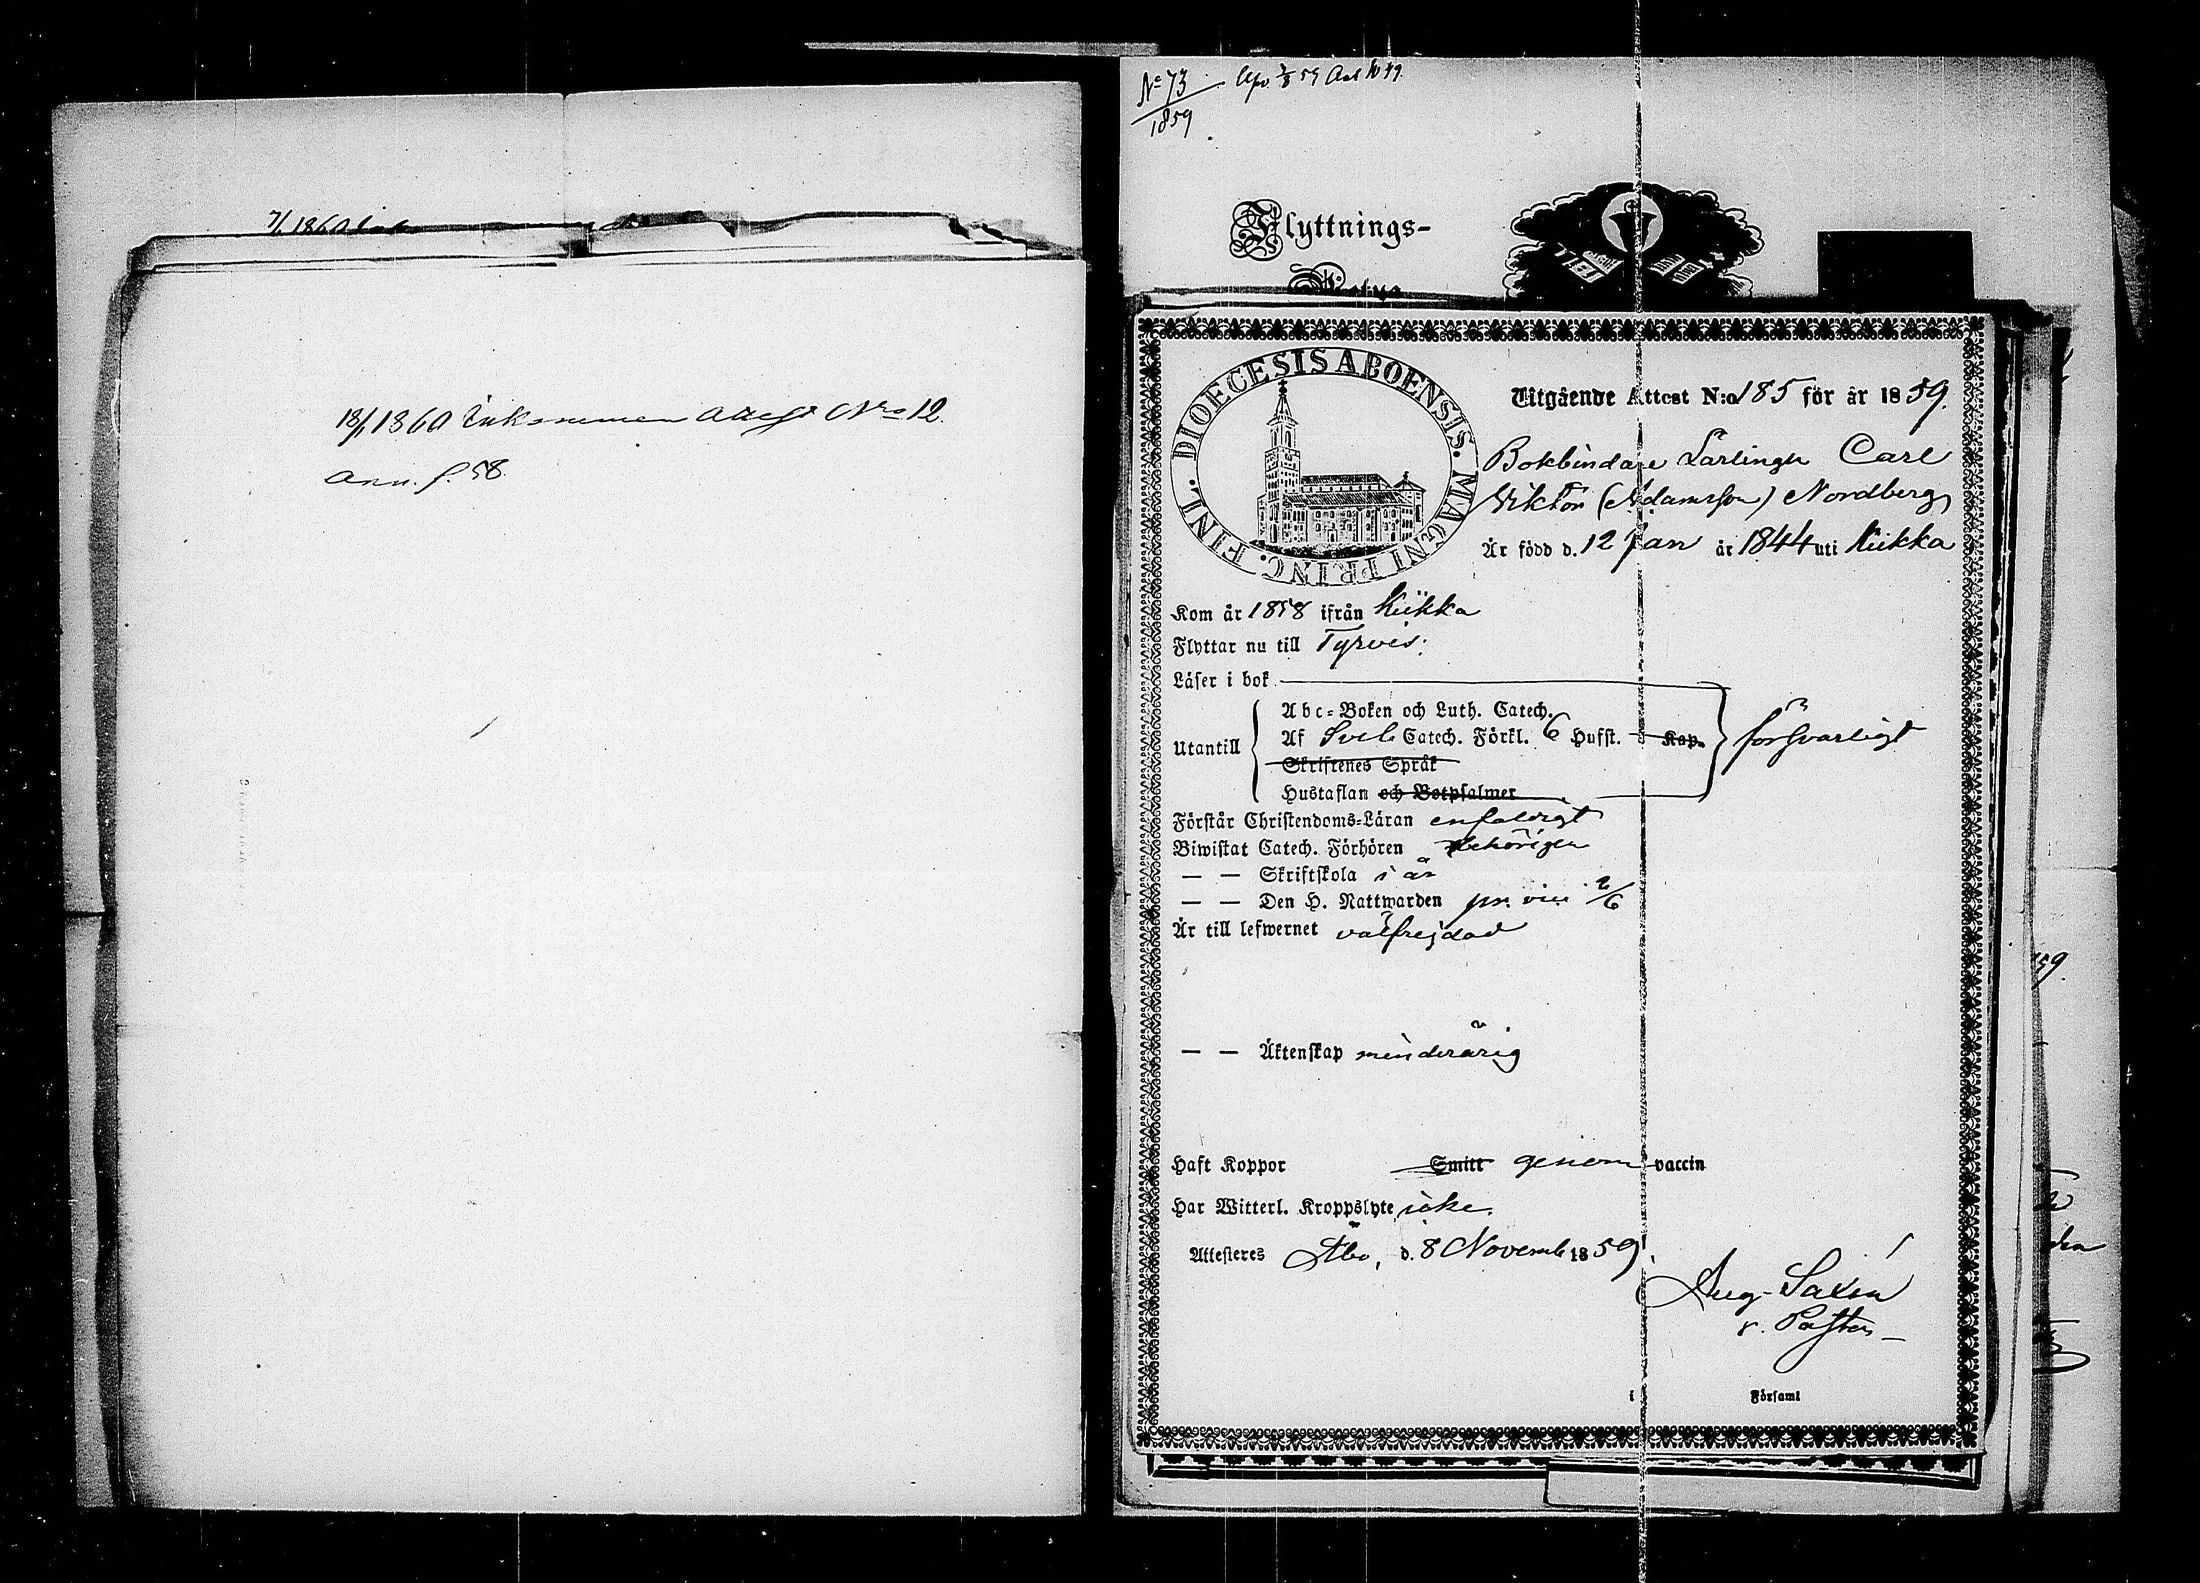 7/1 1860
18/1 1860 Inkommen Attest Nro 12.
Ann. f. 58.
No 73
1859
Flyttnings-
Betyg
DIOECESIS ABOENSIS. MAGNI PRINC. FINL.
Utgående Attest N:o 185 för år 1859.
Bokbindare Lärlingen Carl
Viktor (Adamsson) Nordberg
Är född d. 12 Jan år 1844 uti Kiikka
Kom år 1858 ifrån Kiikka
Flyttar nu till Tyrvis.
Läser i bok
Utantill
Abc-Boken och Luth. Catech.
Af Sveb Catech. Förkl. 6 Hufst. Kap.
Skriftenes Språk
Hustaflan och Botpsalmer
försvarligt
Förstår Christendoms-Läran enfaldigt
Biwistat Catech. Förhören behörigen
— — Skriftskola i år
— — Den H. Nattwarden pr. vici 2/6
Är till lefwernet välfrejdad
— — Äktenskap minderårig
Haft Koppor Smitt genom vaccin
Har Witterl. Kroppslyte icke.
Attesteres Åbo, d. 8 Novemb 1859.
Aug. Saxén
v. Pastor
i Församl